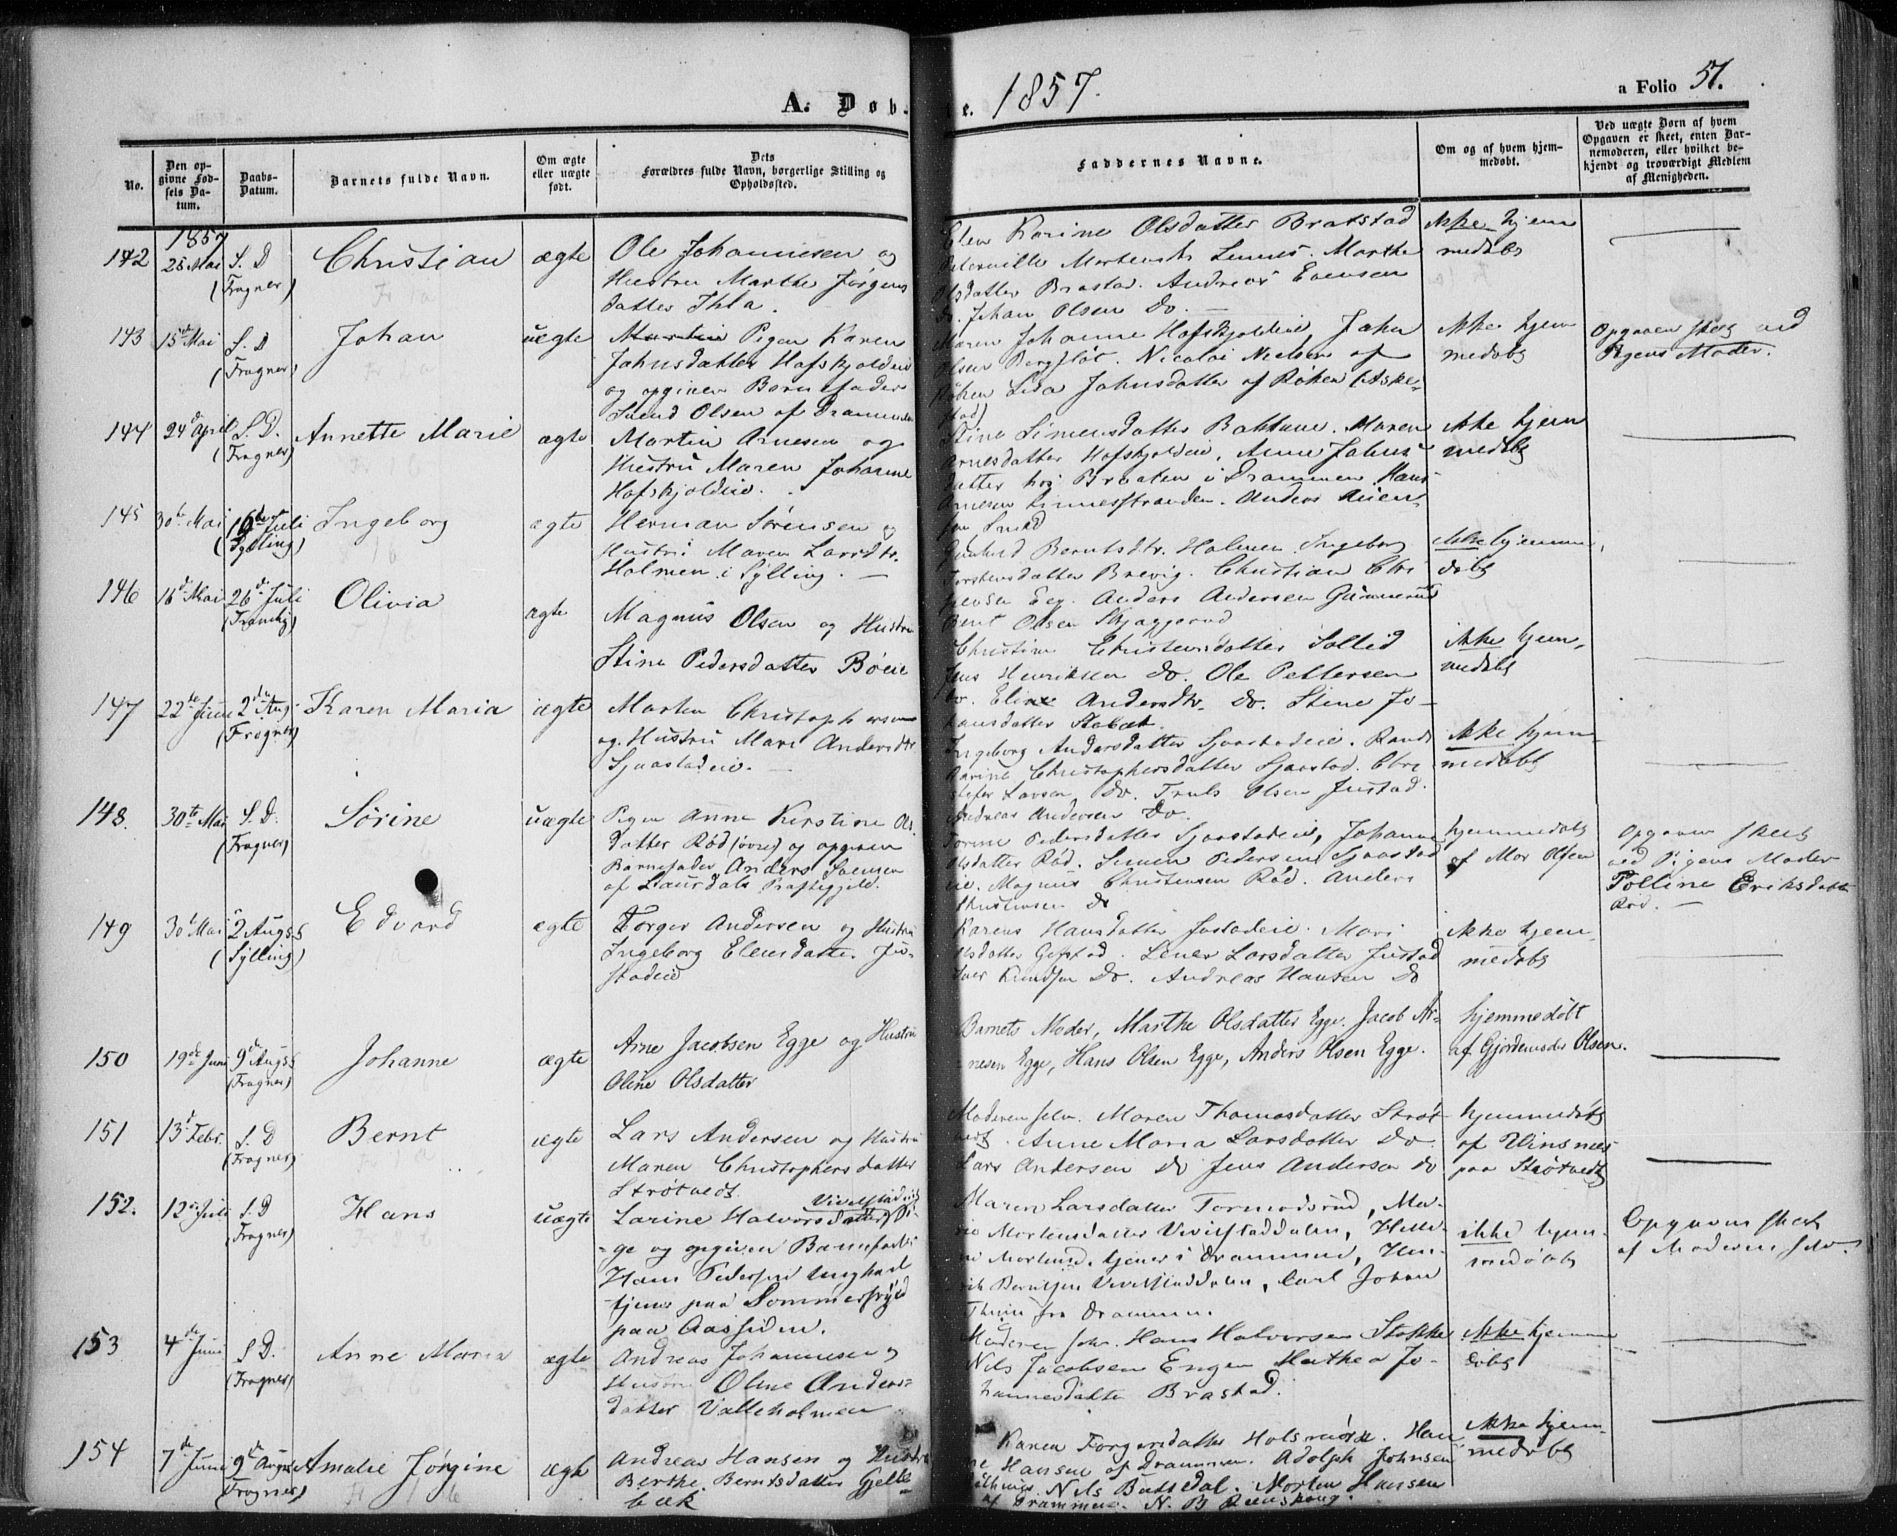 A. Døb
te. 1857.
a Folio 51.
No.
Den opgivne Fødsels Datum.
Daabs-Datum.
Barnets fulde Navn.
Om ægte eller uægte født.
Dets Forældres fulde Navn, borgerlige Stilling og Opholdssted.
Faddernes Navne.
Om og af hvem hjemmedøbt.
Ved uægte Børn af hvem Opgaven er skeet, enten Barnemoderen, eller hvilket bekjendt og troværdigt Medlem af Menigheden.
1857
142 Mai S. D (Frogner) Christian ægte
Ole Johannesen og
Hustru Marthe Jørgens
datter Ihla.
Karine Olsdatter Bratstad
Mortensdt Linnes. Marthe
Olsdatter Brastad. Andreas Evensen
do. Johan Olsen do.
ikke hjem
medøbt
143 15de Mai S. D (Frogner) Johan uægte
Pigen Karen
Johnsdatter Hofskjoldeie
og opgiven Barnefader
Svend Olsen af Drammen
Maren Johanne Hofskjoldeie, John
Olsen Bergfløt. Nicolai Nielsen af
Røken Lisa Johnsdatter af Røken (Aske-
stad)
ikke hjem
medøbt
Opgaven skeet ved
Pigens Moder.
144 24de April S. D. (Frogner) Annette Marie ægte
Martin Arnesen og
Hustru Maren Johanne
Hofskjoldeie.
Stine Simensdatter Bakkene. Maren
Arnesdatter Hofskjoldeie, Anne Johns
datter hos Braaten i Drammen Hans
Arnesen Linnesstranden. Anders
ikke hjem
medøbt
145 30te Mai Juli (Sylling) Ingeborg ægte
Herman Sørensen og
Hustru Maren Larsdtr.
Holmen i Sylling.
Gunhild Berntsdtr. Holmen Ingeborg
Torstensdatter Brevig. Christian Chri
stensen Eeg. Anders Andersen Gummerud
Bent Olsen Skjaggerud
ikke hjemme
døbt
146 16de Mai 26de Juli (Tranby) Olivia ægte
Magnus Olsen og Hustru
Stine Pedersdatter Bøeie
Christine Christensdatter Sollid
Jens Henriksen do. Ole Pettersen
do. Eline Andersdtr. do. Stine Jo-
hansdatter Stabæk
ikke hjem
medøbt
147 22de Juni 2den Aug. (Frogner) Karen Maria ægte
Morten Christophersen
og Hustru Mari Andersdtr
Sjaastadeie.
Ingeborg Andersdatter Sjaastadeie. Randi
Karine Christophersdatter Sjaastad. Chri
stofer Larsen do. Truls Olsen Justad.
Andreas Andersen do.
ikke hjem
medøbt
148 30te Mai S. D. (Frogner) Sørine uægte
Pigen Anne Kirstine Ols
datter Rød (øvre) og opgiven
Barnefader Anders Svensen
af Laurdals Præstegjeld.
Torine Pedersdatter Sjaastadeie, Johanne
Olsdatter Rød. Simen Pedersen Sjaastad
eie. Magnus Christensen Rød. Anders
Christensen do
hjemmedøbt
af Mor Olsen
Opgaven skeet
ved Pigens Moder
Polline Eriksdatter
Rød.
149 30te Mai 2 August (Sylling) Edvard ægte
Torger Andersen og Hustru
Ingeborg Elensdatter Ju-
stadeie
Karens Hansdatter Justadeie. Mari
Olsdatter Gopstad. Lener Larsdatter Justad
Iver Knudsen do. Andreas Hansen do
ikke hjem
medøbt
150 19de Juni 9de August (Frogner) Johanne ægte
Arne Jacobsen Egge og Hustru
Oline Olsdatter
Barnets Moder, Marthe Olsdatter Egge. Jacob Ar-
nesen Egge, Hans Olsen Egge, Anders Olsen Egge.
hjemmedøbt
af Gjordemoder Olsen.
151 13de Febr. S. D (Frogner) Bernt ægte
Lars Andersen og Hustru
Maren Christophersdatter
Strøtvedt
Moderen selv. Maren Thomasdatter Strøt
vedt. Anne Maria Larsdatter do
Lars Andersen do Jens Andersen do
hjemmedøbt
af Vinsnæs
paa Strøtvedt
152. 12te Juli S. D (Frogner) Hans uægte
Larine Halvorsdatter Pi-
ge og opgiven Barnefader
Hans Pedersen ungkarl
tjener paa Sommerfryd
paa Aassiden.
Maren Larsdatter Tormodsrud, Ma-
rie Mortensdatter Vivelstaddalen, Helle-
ne Mortensd. tjener i Drammen, Hen-
rik Berntsen Vivelstaddalen, Carl Johan
Thune fra Drammen.
ikke hjem
medøbt
Opgaven skeet
af Moderen selv.
153 4de Juni S D. (Frogner) Anne Maria ægte
Andreas Johannesen og
Hustru Oline Anders-
datter Valleholmen
Moderen selv. Hans Halvorsen Stokke
Nils Jacobsen Engen Mathea Jo-
hannesdatter Brastad.
ikke hjemme
døbt
154 7de Juni 9de August (Frogner) Amalie Jørgine ægte
Andreas Hansen og Hustru
Berthe Berntsdatter Gjelle-
bæk
Karen Torgersdatter Holsmork. Han
ne Hansen af Drammen. Adolph Johnsen
Nils Butsedal. Morten Hansen
af Drammen. N. B.
ikke hjem
medøbt